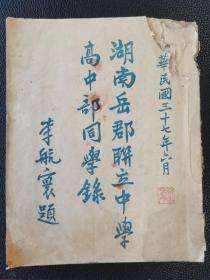 華民國三十七年六月
湖南岳郡聯立中學
高中部同學錄
李航裏題